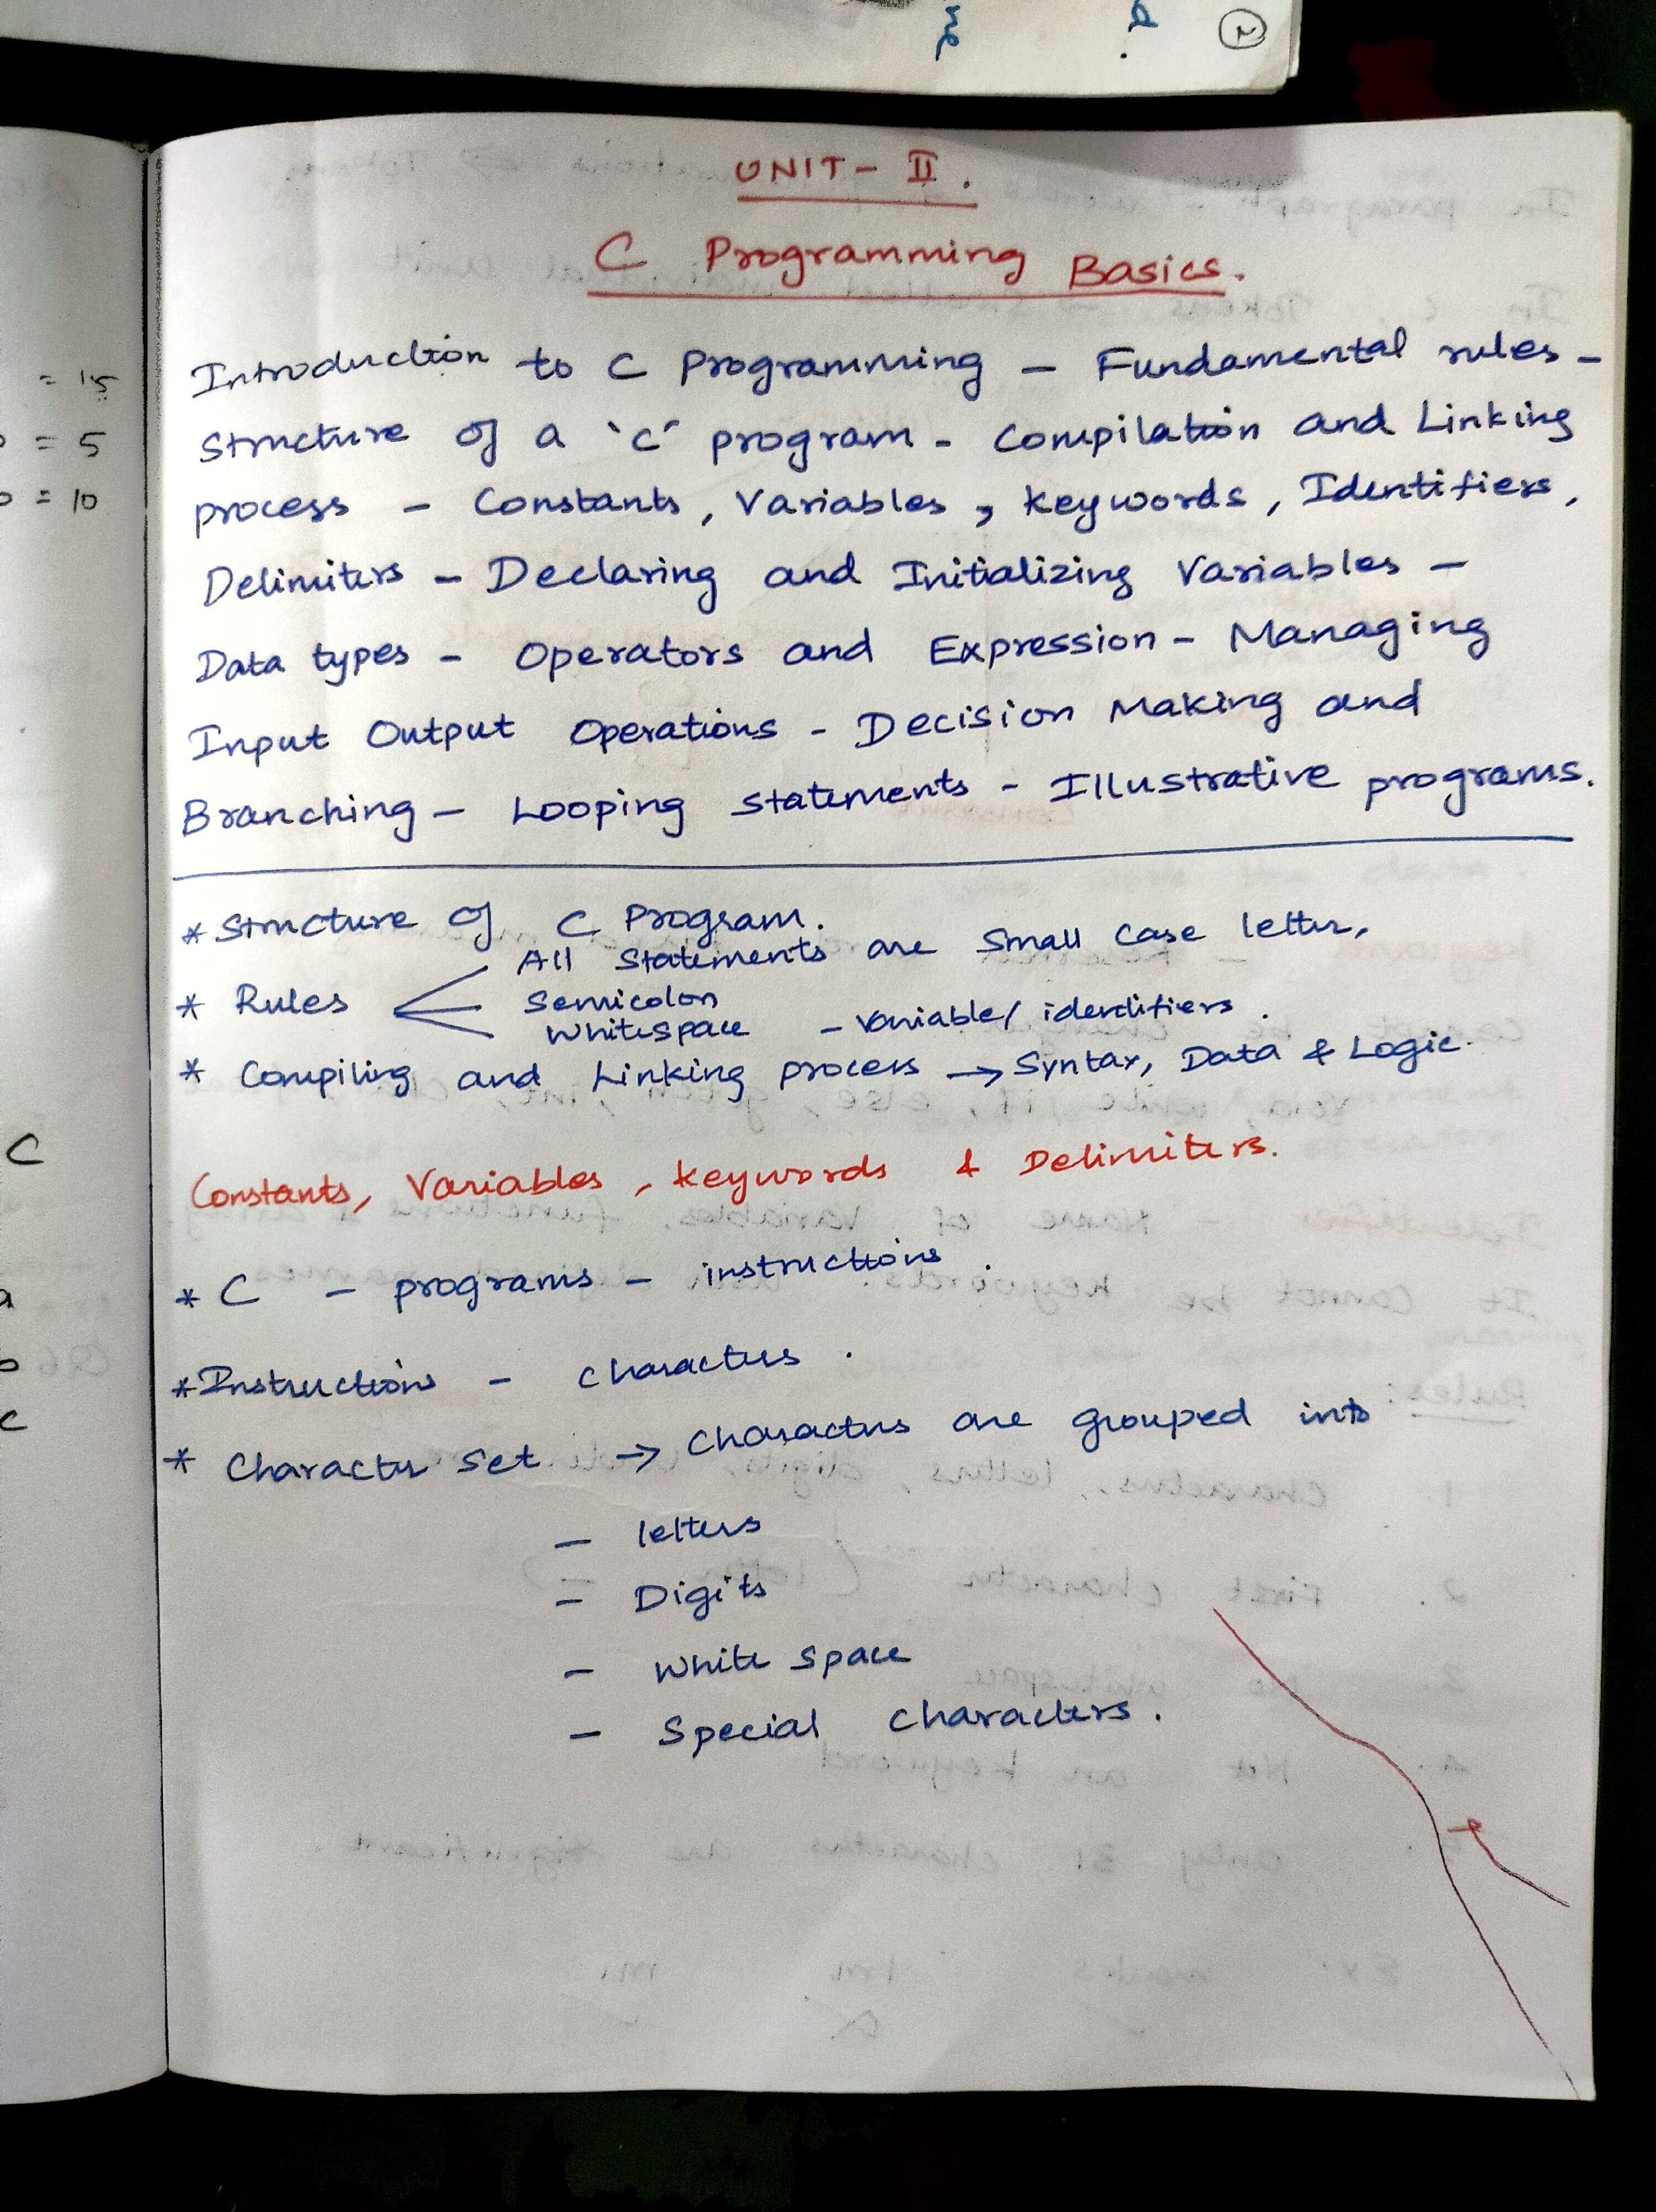 UNIT - II.
C Programming Basics.
Introduction to C Programming - Fundamental rules -
Structure of a 'C' program - Compilation and Linking
process - Constants, Variables, Keywords, Identifiers,
Delimiters - Declaring and Initializing Variables -
Data types - Operators and Expression - Managing
Input Output Operations - Decision Making and
Branching - Looping statements - Illustrative programs.
* Structure of C Program.
All Statements are small case letter,
* Rules Semicolon
Whitespace - variable/identifiers.
* Compiling and Linking process → Syntax, Data & Logic.
Constants, Variables, Keywords & Delimiters.
* C - programs - instructions.
* Instructions - characters.
* Character set → Characters are grouped into
- letters
- Digits
- White space
- Special characters.
= 15
= 5
= 10
C
a
b
c